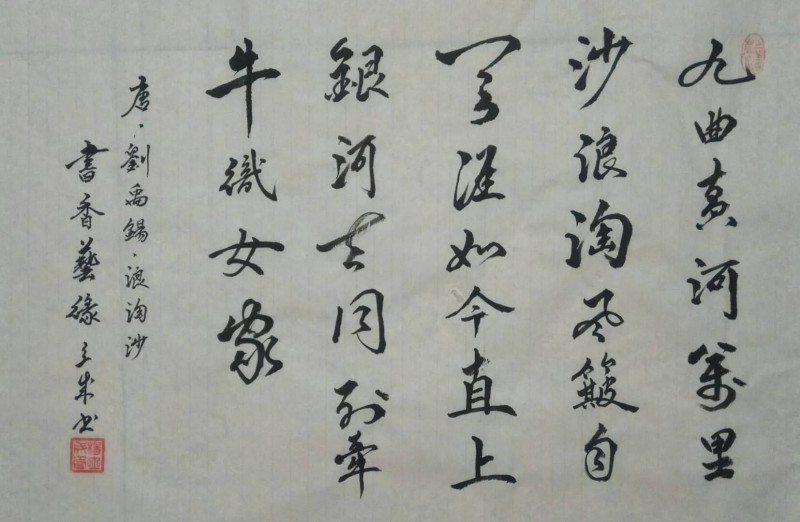 九曲黄河萬里
沙浪淘风簸自
天涯如今直上
銀河去同到牽
牛織女家
唐、劉禹錫、浪淘沙
書香藝緣 成书